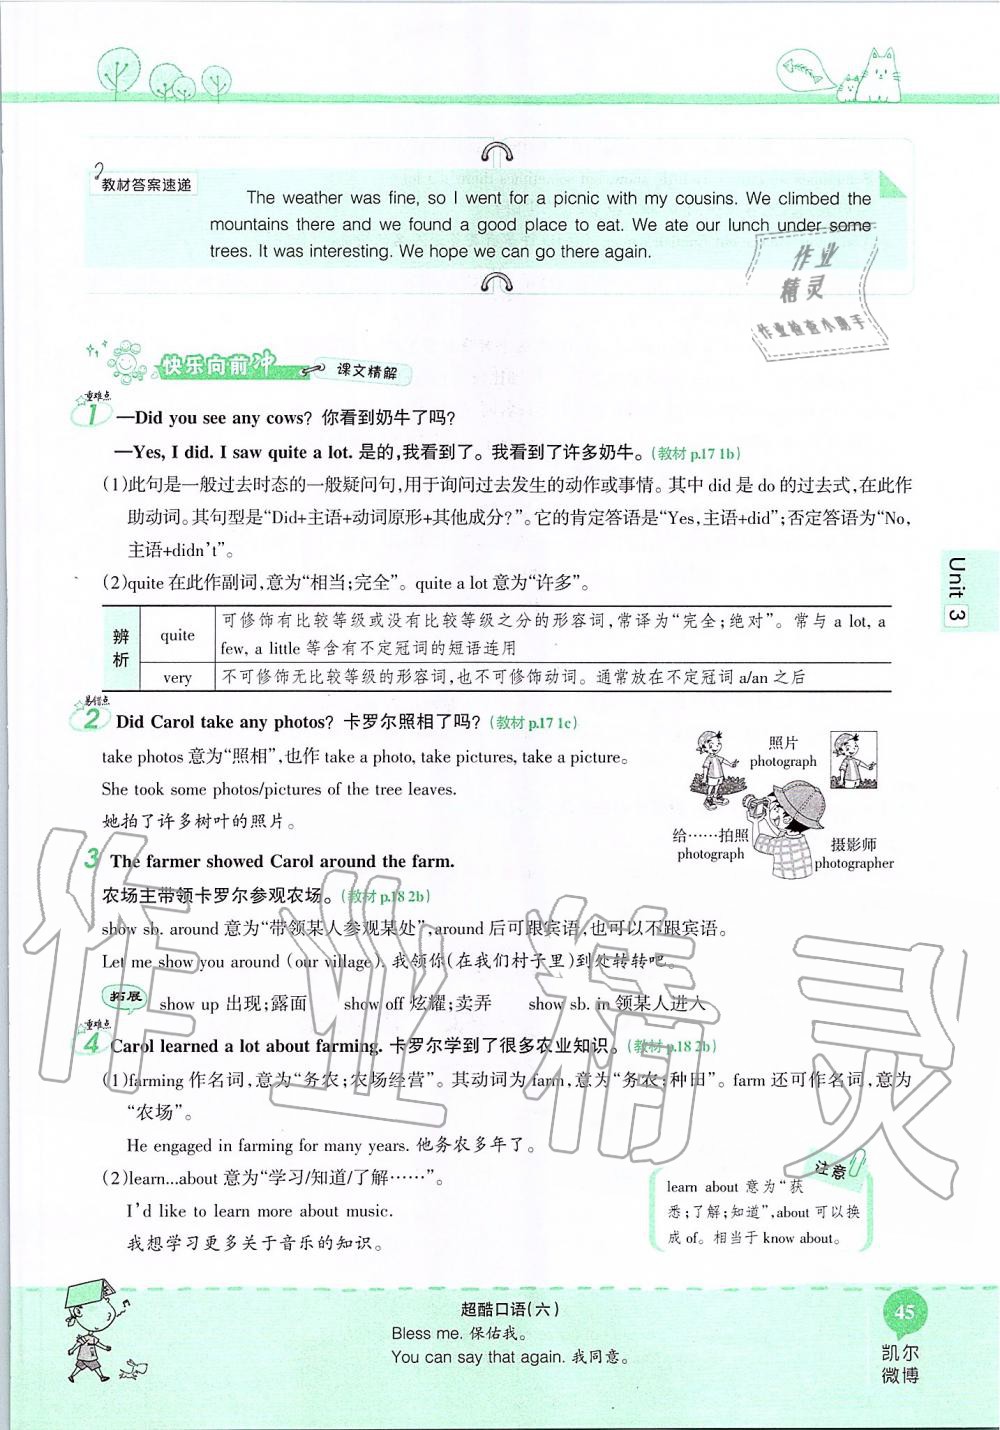 教材答案速递
The weather was fine, so I went for a picnic with my cousins. We climbed the
mountains there and we found a good place to eat. We ate our lunch under some
trees. It was interesting. We hope we can go there again.
作业
精灵
作业检查小助手
快乐向前冲
课文精解
重难点
1 —Did you see any cows? 你看到奶牛了吗?
—Yes, I did. I saw quite a lot. 是的,我看到了。我看到了许多奶牛。(教材 p.17 1b)
(1)此句是一般过去时态的一般疑问句,用于询问过去发生的动作或事情。其中 did 是 do 的过去式,在此作
助动词。其句型是“Did+主语+动词原形+其他成分?”。它的肯定答语是“Yes,主语+did”;否定答语为“No,
主语+didn't”。
(2)quite 在此作副词,意为“相当;完全”。quite a lot 意为“许多”。
辨析
quite
可修饰有比较等级或没有比较等级之分的形容词,常译为“完全;绝对”。常与 a lot, a
few, a little 等含有不定冠词的短语连用
very
不可修饰无比较等级的形容词,也不可修饰动词。通常放在不定冠词 a/an 之后
Unit 3
易错点
2 Did Carol take any photos? 卡罗尔照相了吗?(教材 p.17 1c)
take photos 意为“照相”,也作 take a photo, take pictures, take a picture。
She took some photos/pictures of the tree leaves.
她拍了许多树叶的照片。
照片
photograph
给……拍照
photograph
摄影师
photographer
3 The farmer showed Carol around the farm.
农场主带领卡罗尔参观农场。(教材 p.18 2b)
show sb. around 意为“带领某人参观某处”,around 后可跟宾语,也可以不跟宾语。
Let me show you around (our village). 我领你(在我们村子里)到处转转吧。
拓展 show up 出现;露面 show off 炫耀;卖弄 show sb. in 领某人进入
重难点
4 Carol learned a lot about farming. 卡罗尔学到了很多农业知识。(教材 p.18 2b)
(1)farming 作名词,意为“务农;农场经营”。其动词为 farm,意为“务农;种田”。farm 还可作名词,意为
“农场”。
He engaged in farming for many years. 他务农多年了。
(2)learn...about 意为“学习/知道/了解……”。
I'd like to learn more about music.
我想学习更多关于音乐的知识。
注意
learn about 意为“获
悉;了解;知道”,about 可以换
成 of。相当于 know about。
作业精灵
超酷口语(六)
Bless me. 保佑我。
You can say that again. 我同意。
45
凯尔
微博